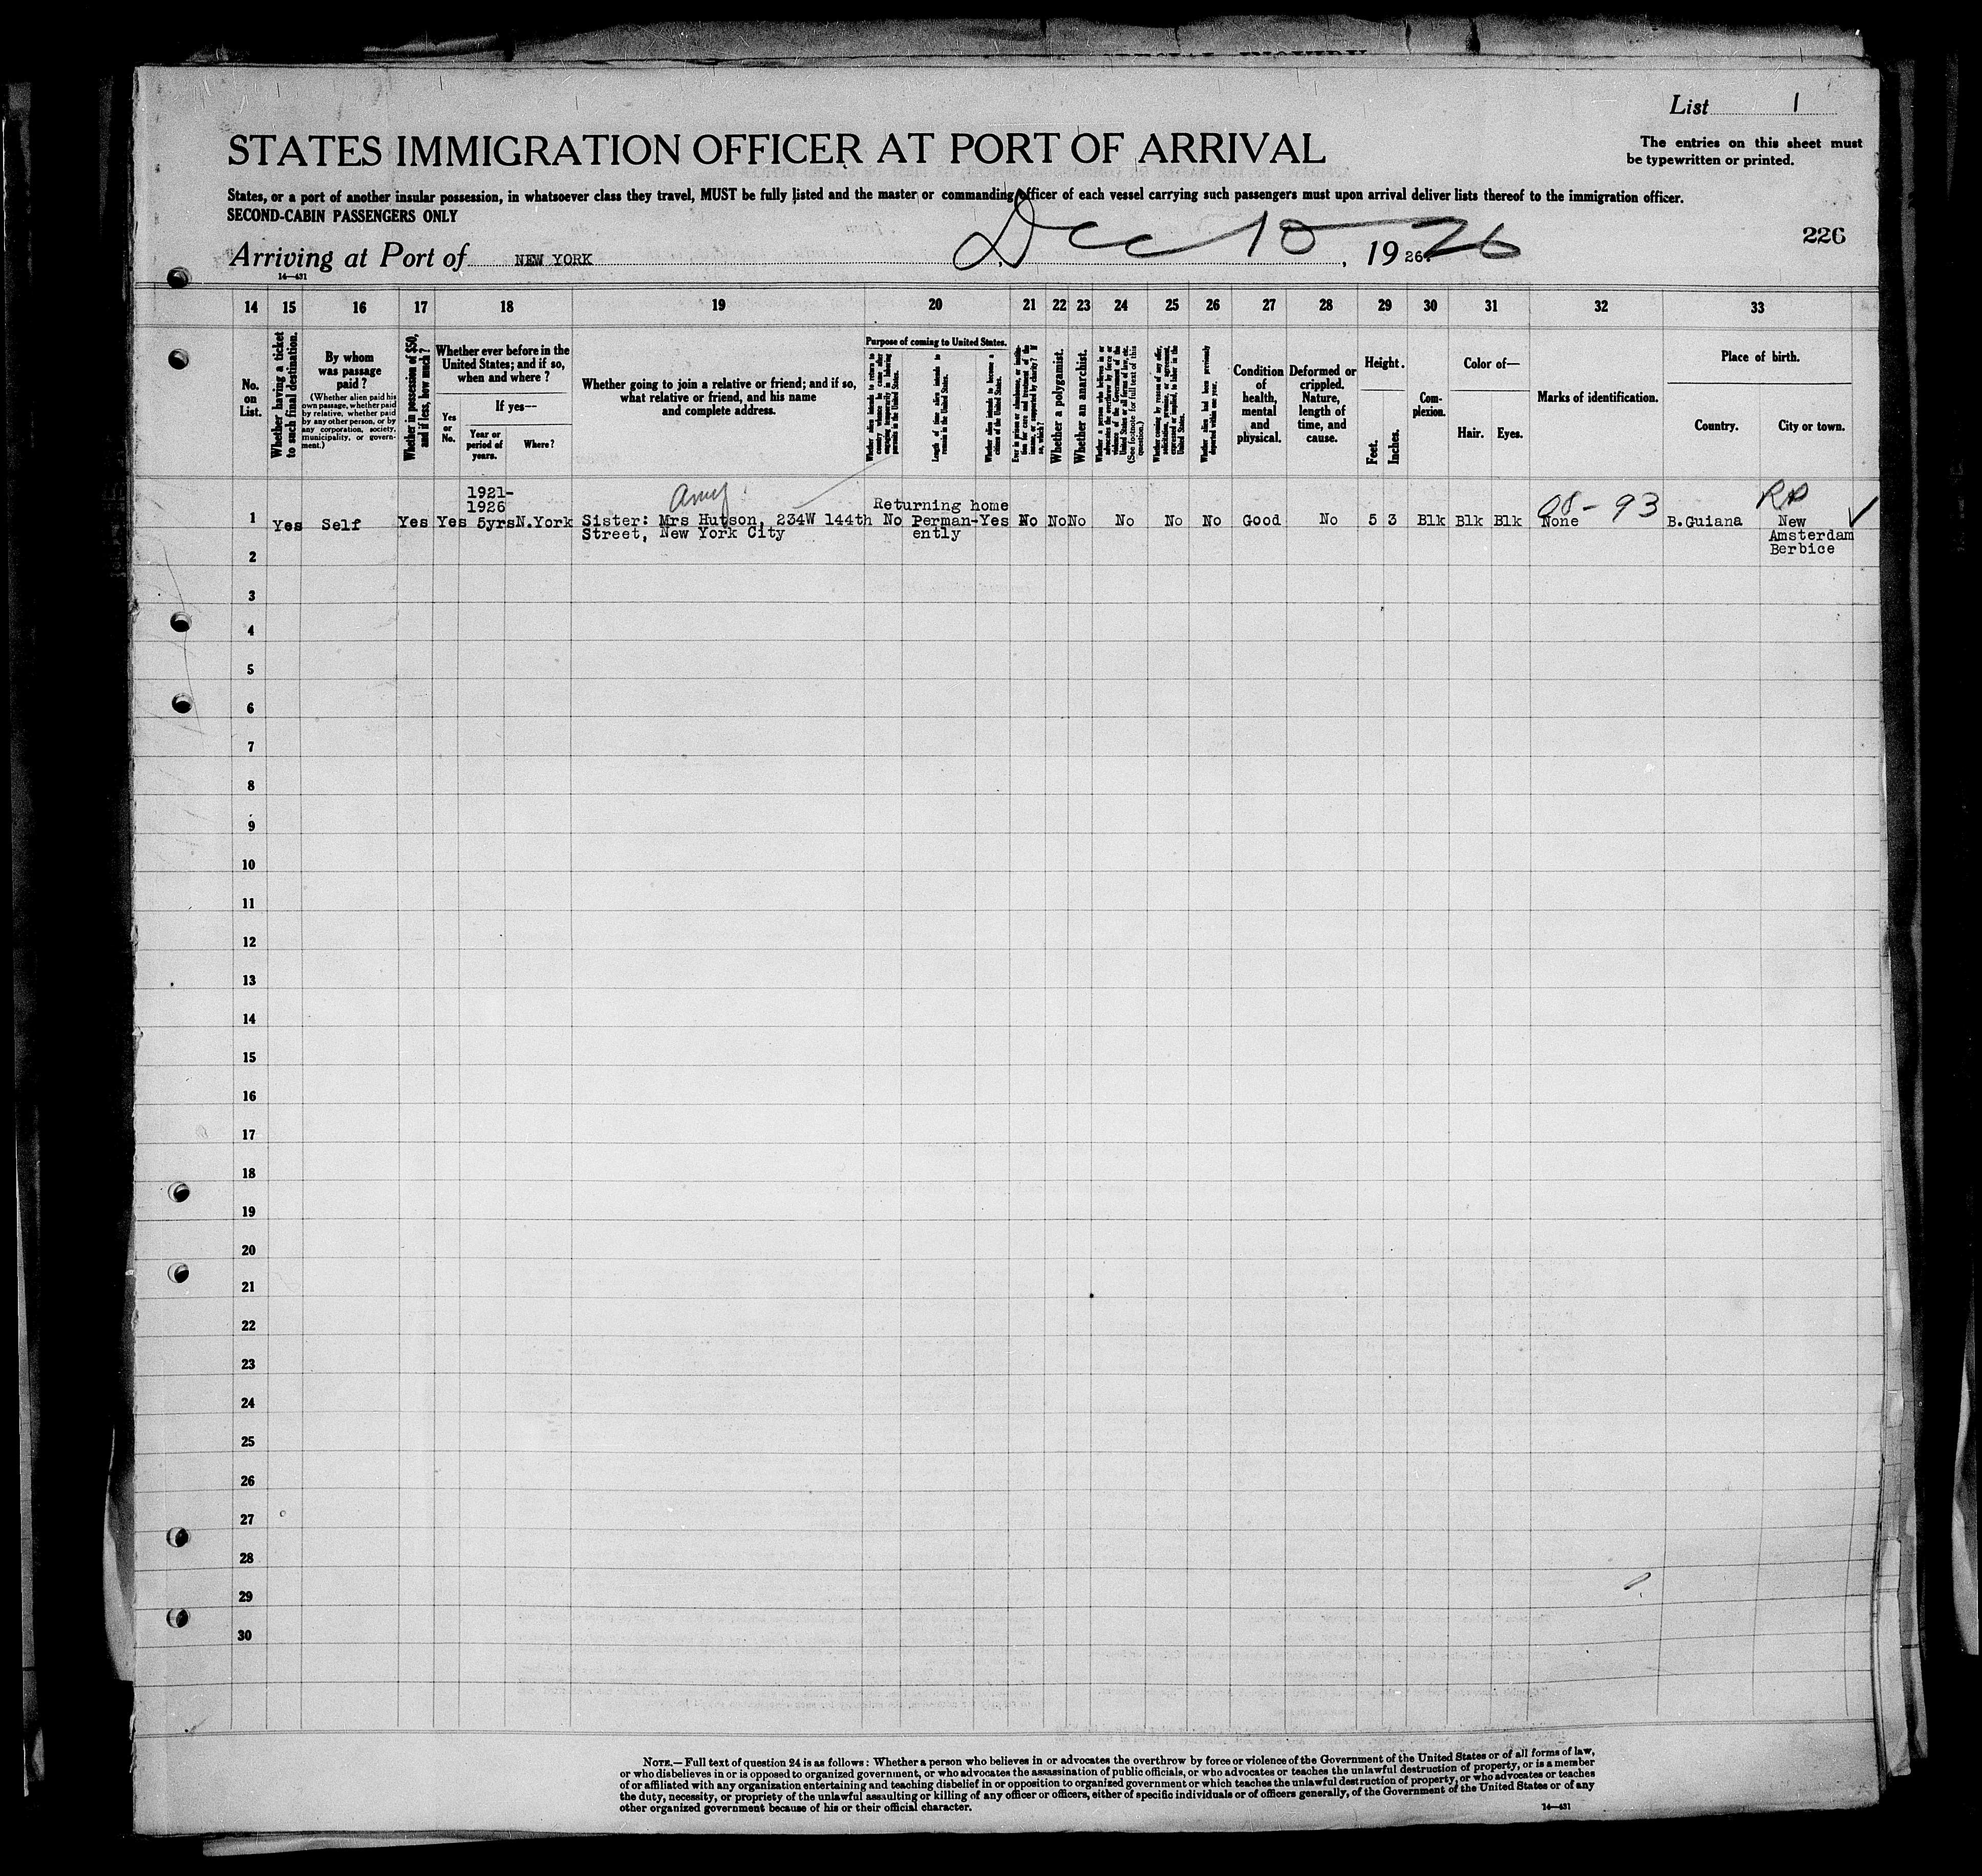 List 1
The entries on this sheet must
be typewritten or printed.
STATES IMMIGRATION OFFICER AT PORT OF ARRIVAL
States, or a port of another insular possession, in whatsoever class they travel, MUST be fully listed and the master or commanding officer of each vessel carrying such passengers must upon arrival deliver lists thereof to the immigration officer.
SECOND-CABIN PASSENGERS ONLY
226
Arriving at Port of NEW YORK, Dec 10, 19 26. 26
14—431
14 15 16 17 18 19 20 21 22 23 24 25 26 27 28 29 30 31 32 33
No.
on
List.
Whether having a ticket
to such final destination.
By whom
was passage
paid?
(Whether alien paid his
own passage, whether paid
by relative, whether paid
by any other person, or by
any corporation, society,
municipality, or govern-
ment.)
Whether in possession of $50,
and if less, how much?
Whether ever before in the
United States; and if so,
when and where?
Yes
or
No.
If yes—
Year or
period of
years.
Where?
Whether going to join a relative or friend; and if so,
what relative or friend, and his name
and complete address.
Purpose of coming to United States.
Whether alien intends to return to
country whence he came after
engaging temporarily in laboring
pursuits in the United States.
Length of time alien intends to
remain in the United States.
Whether alien intends to become a
citizen of the United States.
Ever in prison or almshouse, or institu-
tion for care and treatment of the
insane, or supported by charity? If
so, which?
Whether a polygamist.
Whether an anarchist.
Whether a person who believes in or
advocates the overthrow by force or
violence of the Government of the
United States or all forms of law, etc.
(See footnote for full text of this
question.)
Whether coming by reason of any offer,
solicitation, promise, or agreement,
expressed or implied, to labor in the
United States.
Whether alien had been previously
deported within one year.
Condition
of
health,
mental
and
physical.
Deformed or
crippled.
Nature,
length of
time, and
cause.
Height.
Feet.
Inches.
Com-
plexion.
Color of—
Hair. Eyes.
Marks of identification.
Place of birth.
Country.
City or town.
1921-
1926
Amy
Returning home
08-93
1 Yes Self Yes Yes 5yrs N.York Sister: Mrs Hutson, 234W 144th No Perman- Yes No No No No No No Good No 5 3 Blk Blk Blk None B.Guiana New
Street, New York City ently Amsterdam
Berbice
2
3
4
5
6
7
8
9
10
11
12
13
14
15
16
17
18
19
20
21
22
23
24
25
26
27
28
29
30
NOTE.—Full text of question 24 is as follows: Whether a person who believes in or advocates the overthrow by force or violence of the Government of the United States or of all forms of law,
or who disbelieves in or is opposed to organized government, or who advocates the assassination of public officials, or who advocates or teaches the unlawful destruction of property, or is a member
of or affiliated with any organization entertaining and teaching disbelief in or opposition to organized government or which teaches the unlawful destruction of property, or who advocates or teaches
the duty, necessity, or propriety of the unlawful assaulting or killing of any officer or officers, either of specific individuals or of officers generally, of the Government of the United States or of any
other organized government because of his or their official character.
14—431